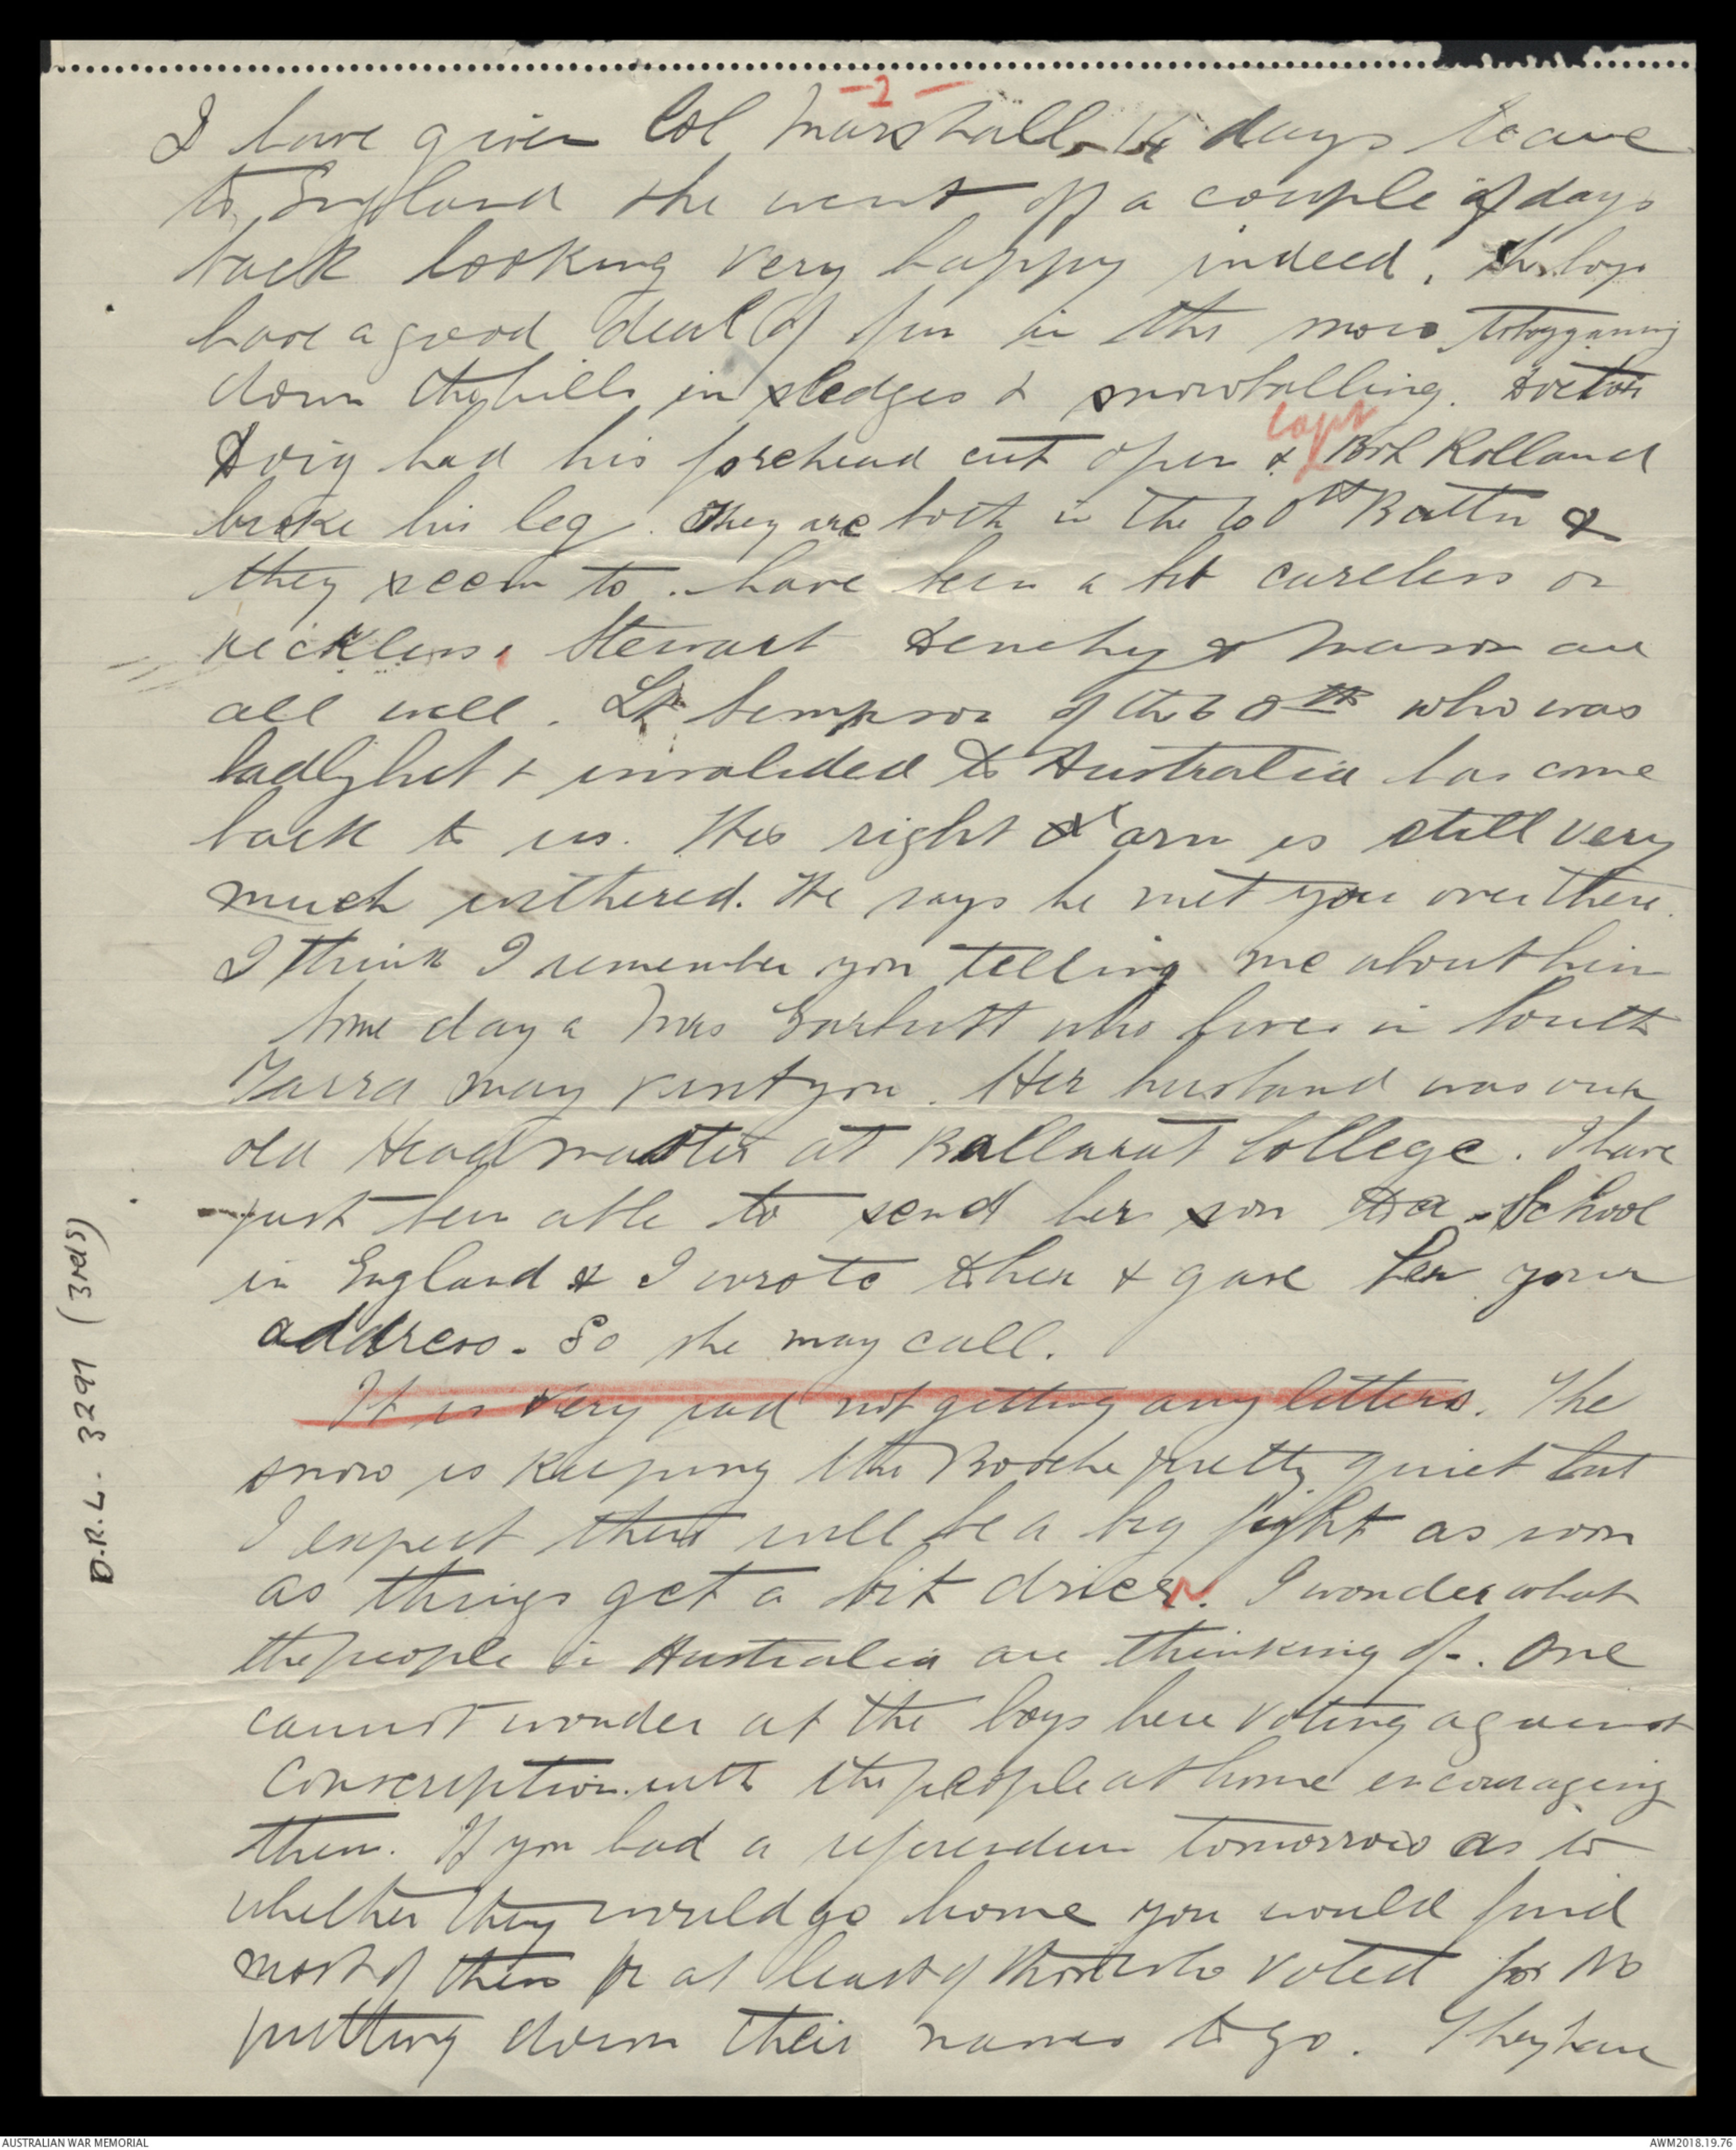 -2-
I have given Col Marshall, 14 days leave
to England & he went off a couple of days
back looking very happy indeed. The boys
have a good deal of fun in the snow tobogganing
down the hills in sledges & snowballing. Doctor
Doig had his forehead cut open & Capt Bob Rolland
broke his leg. They are both in the 60th Battn &
they seem to have been a bit careless or
reckless. Stewart Denehy & Mason are
all well. Lt Simpson of the 60th who was
badly hit & invalided to Australia has come
back to us. His right arm is still very
much withered. He says he met you over there.
I think I remember you telling me about him
Some day a Mrs Garbutt who lives in South
Yarra may visit you. Her husband was our
old Head master at Ballarat College. I have
just been able to send her son to a School
in England & I wrote to her & gave her your
address. So she may call.
It is very sad not getting any letters. The
snow is keeping the Boche pretty quiet but
I expect there will be a big fight as soon
as things get a bit drier. I wonder what
the people in Australia are thinking of. One
cannot wonder at the boys here voting against
Conscription with the people at home encouraging
them. If you had a referendum tomorrow as to
whether they would go home you would find
most of them or at least of those who voted for No
putting down their names to go. They have
D.R.L. 3291 (3rd5)
AUSTRALIAN WAR MEMORIAL
AWM2018.19.76